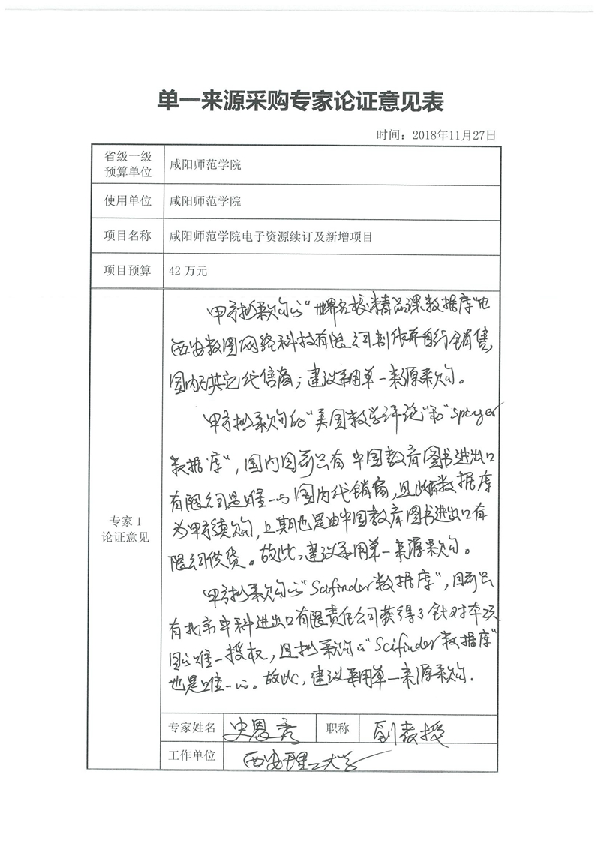 单一来源采购专家论证意见表
时间：2018年11月27日
省级一级
预算单位
咸阳师范学院
使用单位
咸阳师范学院
项目名称
咸阳师范学院电子资源续订及新增项目
项目预算
42万元
专家1
论证意见
甲方拟采购的"世界名校精品课数据库"由
西安数图网络科技有限公司制作并自行销售
国内无其它代销商；建议采用单一来源采购。
甲方拟采购的"美国数学评论"和"springer
数据库"，国内目前只有中国教育图书进出口
有限公司是唯一的国内代销商，且此数据库
为甲方续购，上期也是由中国教育图书进出口有
限公司供货。故此，建议采用单一来源采购。
甲方拟采购的"Scifinder数据库"，目前只
有北京中科进出口有限责任公司获得了针对本项
目的唯一授权，且拟采购的"Scifinder数据库"
也是唯一的。故此，建议采用单一来源采购.
专家姓名
职称
副教授
工作单位
西安理工大学